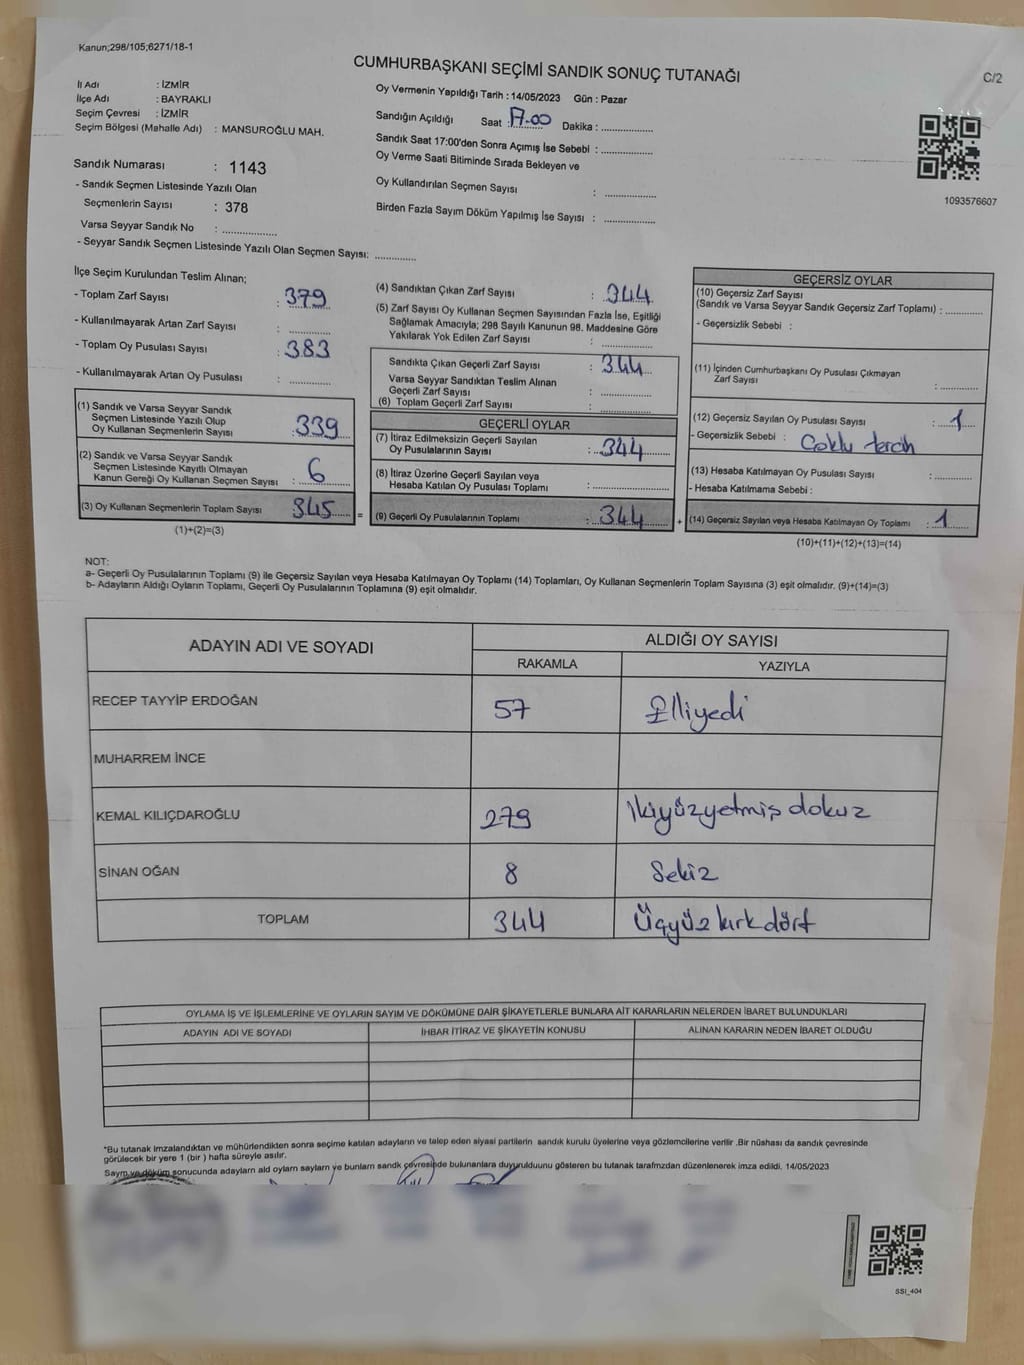 Kanun;298/105;6271/18-1
CUMHURBAŞKANI SEÇİMİ SANDIK SONUÇ TUTANAĞI
C/2
İl Adı : İZMİR
İlçe Adı : BAYRAKLI
Seçim Çevresi : İZMİR
Seçim Bölgesi (Mahalle Adı) : MANSUROĞLU MAH.
Sandık Numarası : 1143
- Sandık Seçmen Listesinde Yazılı Olan
Seçmenlerin Sayısı : 378
Varsa Seyyar Sandık No : ..................
- Seyyar Sandık Seçmen Listesinde Yazılı Olan Seçmen Sayısı: .............
Oy Vermenin Yapıldığı Tarih : 14/05/2023 Gün : Pazar
Sandığın Açıldığı Saat : 17.00 Dakika : ................
Sandık Saat 17:00'den Sonra Açımış İse Sebebi : ................
Oy Verme Saati Bitiminde Sırada Bekleyen ve
Oy Kullandırılan Seçmen Sayısı : ................
Birden Fazla Sayım Döküm Yapılmış İse Sayısı : ................
1093576607
İlçe Seçim Kurulundan Teslim Alınan;
- Toplam Zarf Sayısı : 379
- Kullanılmayarak Artan Zarf Sayısı : .............
- Toplam Oy Pusulası Sayısı : 383
- Kullanılmayarak Artan Oy Pusulası : .............
(1) Sandık ve Varsa Seyyar Sandık
Seçmen Listesinde Yazılı Olup
Oy Kullanan Seçmenlerin Sayısı : 339
(2) Sandık ve Varsa Seyyar Sandık
Seçmen Listesinde Kayıtlı Olmayan
Kanun Gereği Oy Kullanan Seçmen Sayısı : 6
(3) Oy Kullanan Seçmenlerin Toplam Sayısı : 345 =
(1)+(2)=(3)
(4) Sandıktan Çıkan Zarf Sayısı : 344
(5) Zarf Sayısı Oy Kullanan Seçmen Sayısından Fazla İse, Eşitliği
Sağlamak Amacıyla; 298 Sayılı Kanunun 98. Maddesine Göre
Yakılarak Yok Edilen Zarf Sayısı : ................
Sandıkta Çıkan Geçerli Zarf Sayısı : 344
Varsa Seyyar Sandıktan Teslim Alınan
Geçerli Zarf Sayısı : ................
(6) Toplam Geçerli Zarf Sayısı : ................
GEÇERLİ OYLAR
(7) İtiraz Edilmeksizin Geçerli Sayılan
Oy Pusulalarının Sayısı : 344
(8) İtiraz Üzerine Geçerli Sayılan veya
Hesaba Katılan Oy Pusulası Toplamı : ................
(9) Geçerli Oy Pusulalarının Toplamı : 344 +
GEÇERSİZ OYLAR
(10) Geçersiz Zarf Sayısı
(Sandık ve Varsa Seyyar Sandık Geçersiz Zarf Toplamı) : .............
- Geçersizlik Sebebi :
(11) İçinden Cumhurbaşkanı Oy Pusulası Çıkmayan
Zarf Sayısı : .............
(12) Geçersiz Sayılan Oy Pusulası Sayısı : 1
- Geçersizlik Sebebi : Çoklu tercih
(13) Hesaba Katılmayan Oy Pusulası Sayısı : .............
- Hesaba Katılmama Sebebi :
(14) Geçersiz Sayılan veya Hesaba Katılmayan Oy Toplamı : 1
(10)+(11)+(12)+(13)=(14)
NOT:
a- Geçerli Oy Pusulalarının Toplamı (9) ile Geçersiz Sayılan veya Hesaba Katılmayan Oy Toplamı (14) Toplamları, Oy Kullanan Seçmenlerin Toplam Sayısına (3) eşit olmalıdır. (9)+(14)=(3)
b- Adayların Aldığı Oyların Toplamı, Geçerli Oy Pusulalarının Toplamına (9) eşit olmalıdır.
ADAYIN ADI VE SOYADI
ALDIĞI OY SAYISI
RAKAMLA YAZIYLA
RECEP TAYYİP ERDOĞAN 57 Elliyedi
MUHARREM İNCE
KEMAL KILIÇDAROĞLU 279 ikiyüzyetmiş dokuz
SİNAN OĞAN 8 Sekiz
TOPLAM 344 Üçyüz kırk dört
OYLAMA İŞ VE İŞLEMLERİNE VE OYLARIN SAYIM VE DÖKÜMÜNE DAİR ŞİKAYETLERLE BUNLARA AİT KARARLARIN NELERDEN İBARET BULUNDUKLARI
ADAYIN ADI VE SOYADI İHBAR İTİRAZ VE ŞİKAYETİN KONUSU ALINAN KARARIN NEDEN İBARET OLDUĞU
*Bu tutanak imzalandıktan ve mühürlendikten sonra seçime katılan adayların ve talep eden siyasi partilerin sandık kurulu üyelerine veya gözlemcilerine verilir .Bir nüshası da sandık çevresinde
görülecek bir yere 1 (bir ) hafta süreyle asılır.
Sayım ve döküm sonucunda adayların ald oyların sayların ve bunların sandk çevresinde bulunanlara duyurulduunu gösteren bu tutanak tarafmzdan düzenlenerek imza edildi. 14/05/2023
SSI_404